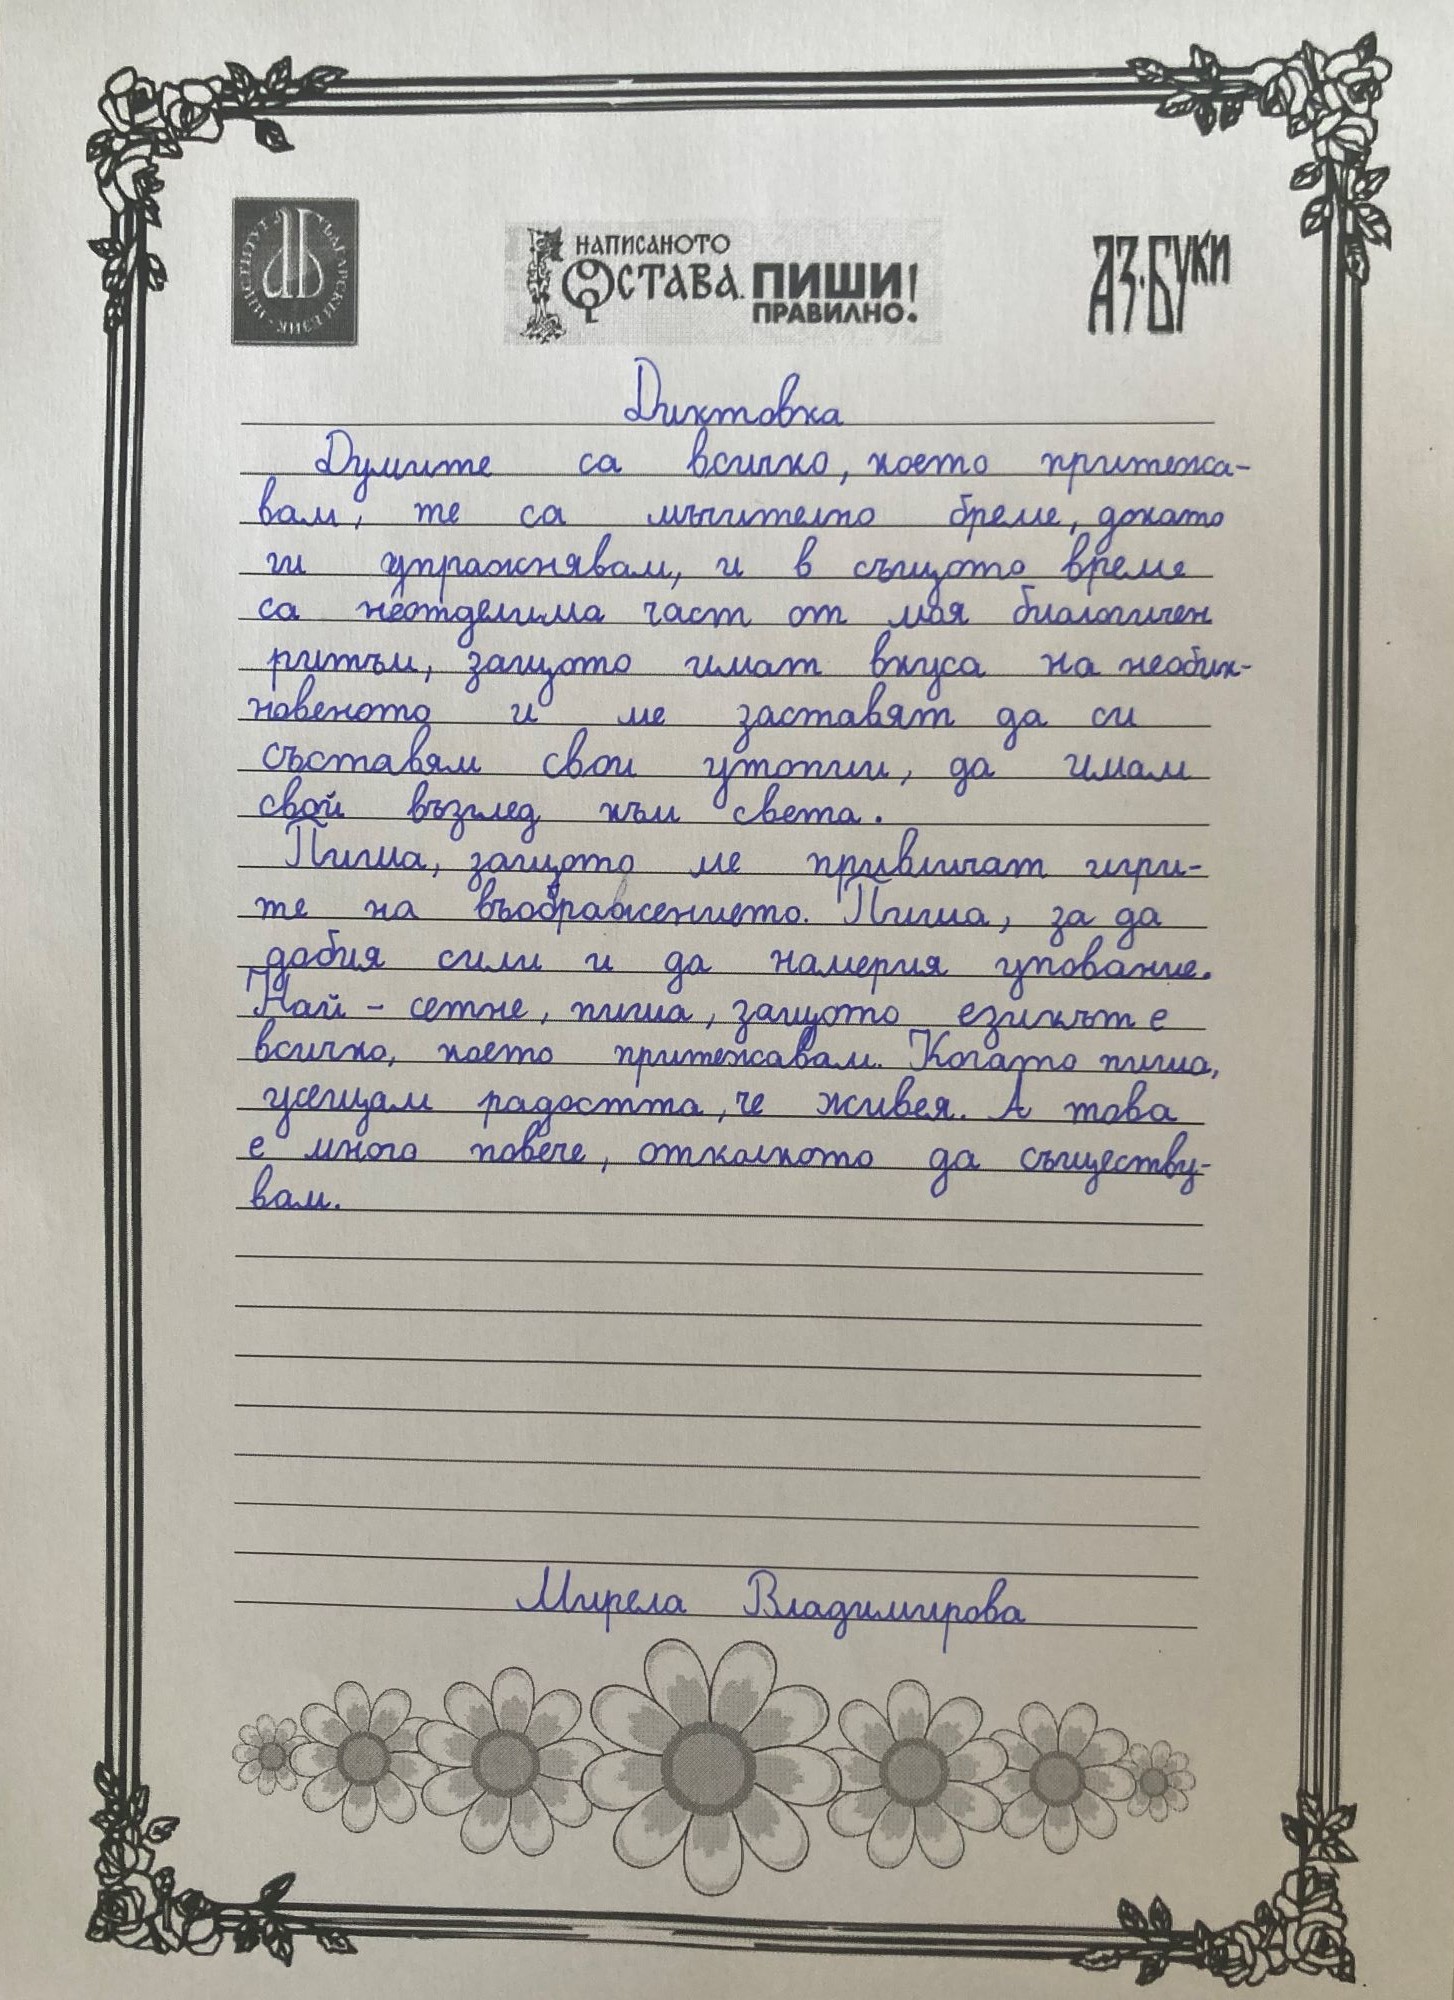 ИНСТИТУТ ЗА БЪЛГАРСКИ ЕЗИК
НАПИСАНОТО
ОСТАВА. ПИШИ
ПРАВИЛНО!
АЗ·БУКИ
Диктовка
Думите са всичко, което притежа-
вам, те са мъчително бреме, докато
ги упражнявам, и в същото време
са неотделима част от моя биологичен
ритъм, защото имат вкуса на необик-
новеното и ме заставят да си
съставям свои утопии, да имам
свой възглед към света.
Пиша, защото ме привличат игри-
те на въображението. Пиша, за да
добия сили и да намеря упование.
Най - сетне, пиша, защото езикът е
всичко, което притежавам. Когато пиша,
усещам радостта, че живея. А това
е много повече, отколкото да съществу-
вам.
Мирела Владимирова